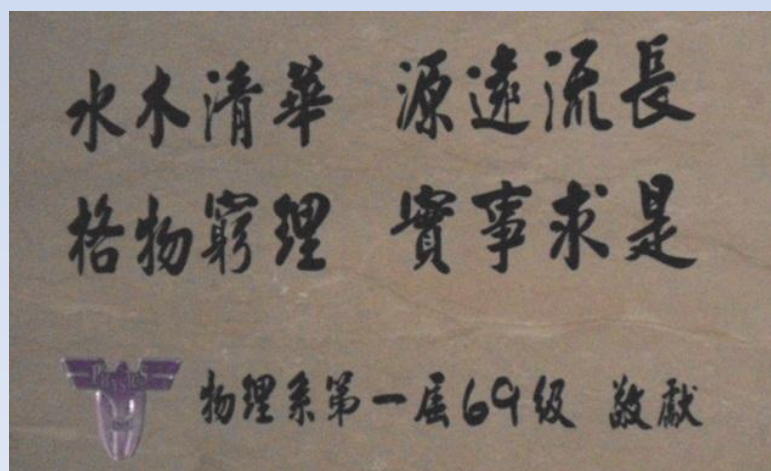 水木清華 源遠流長
格物窮理 實事求是
PHYSICS
物理系第一屆69級 敬獻